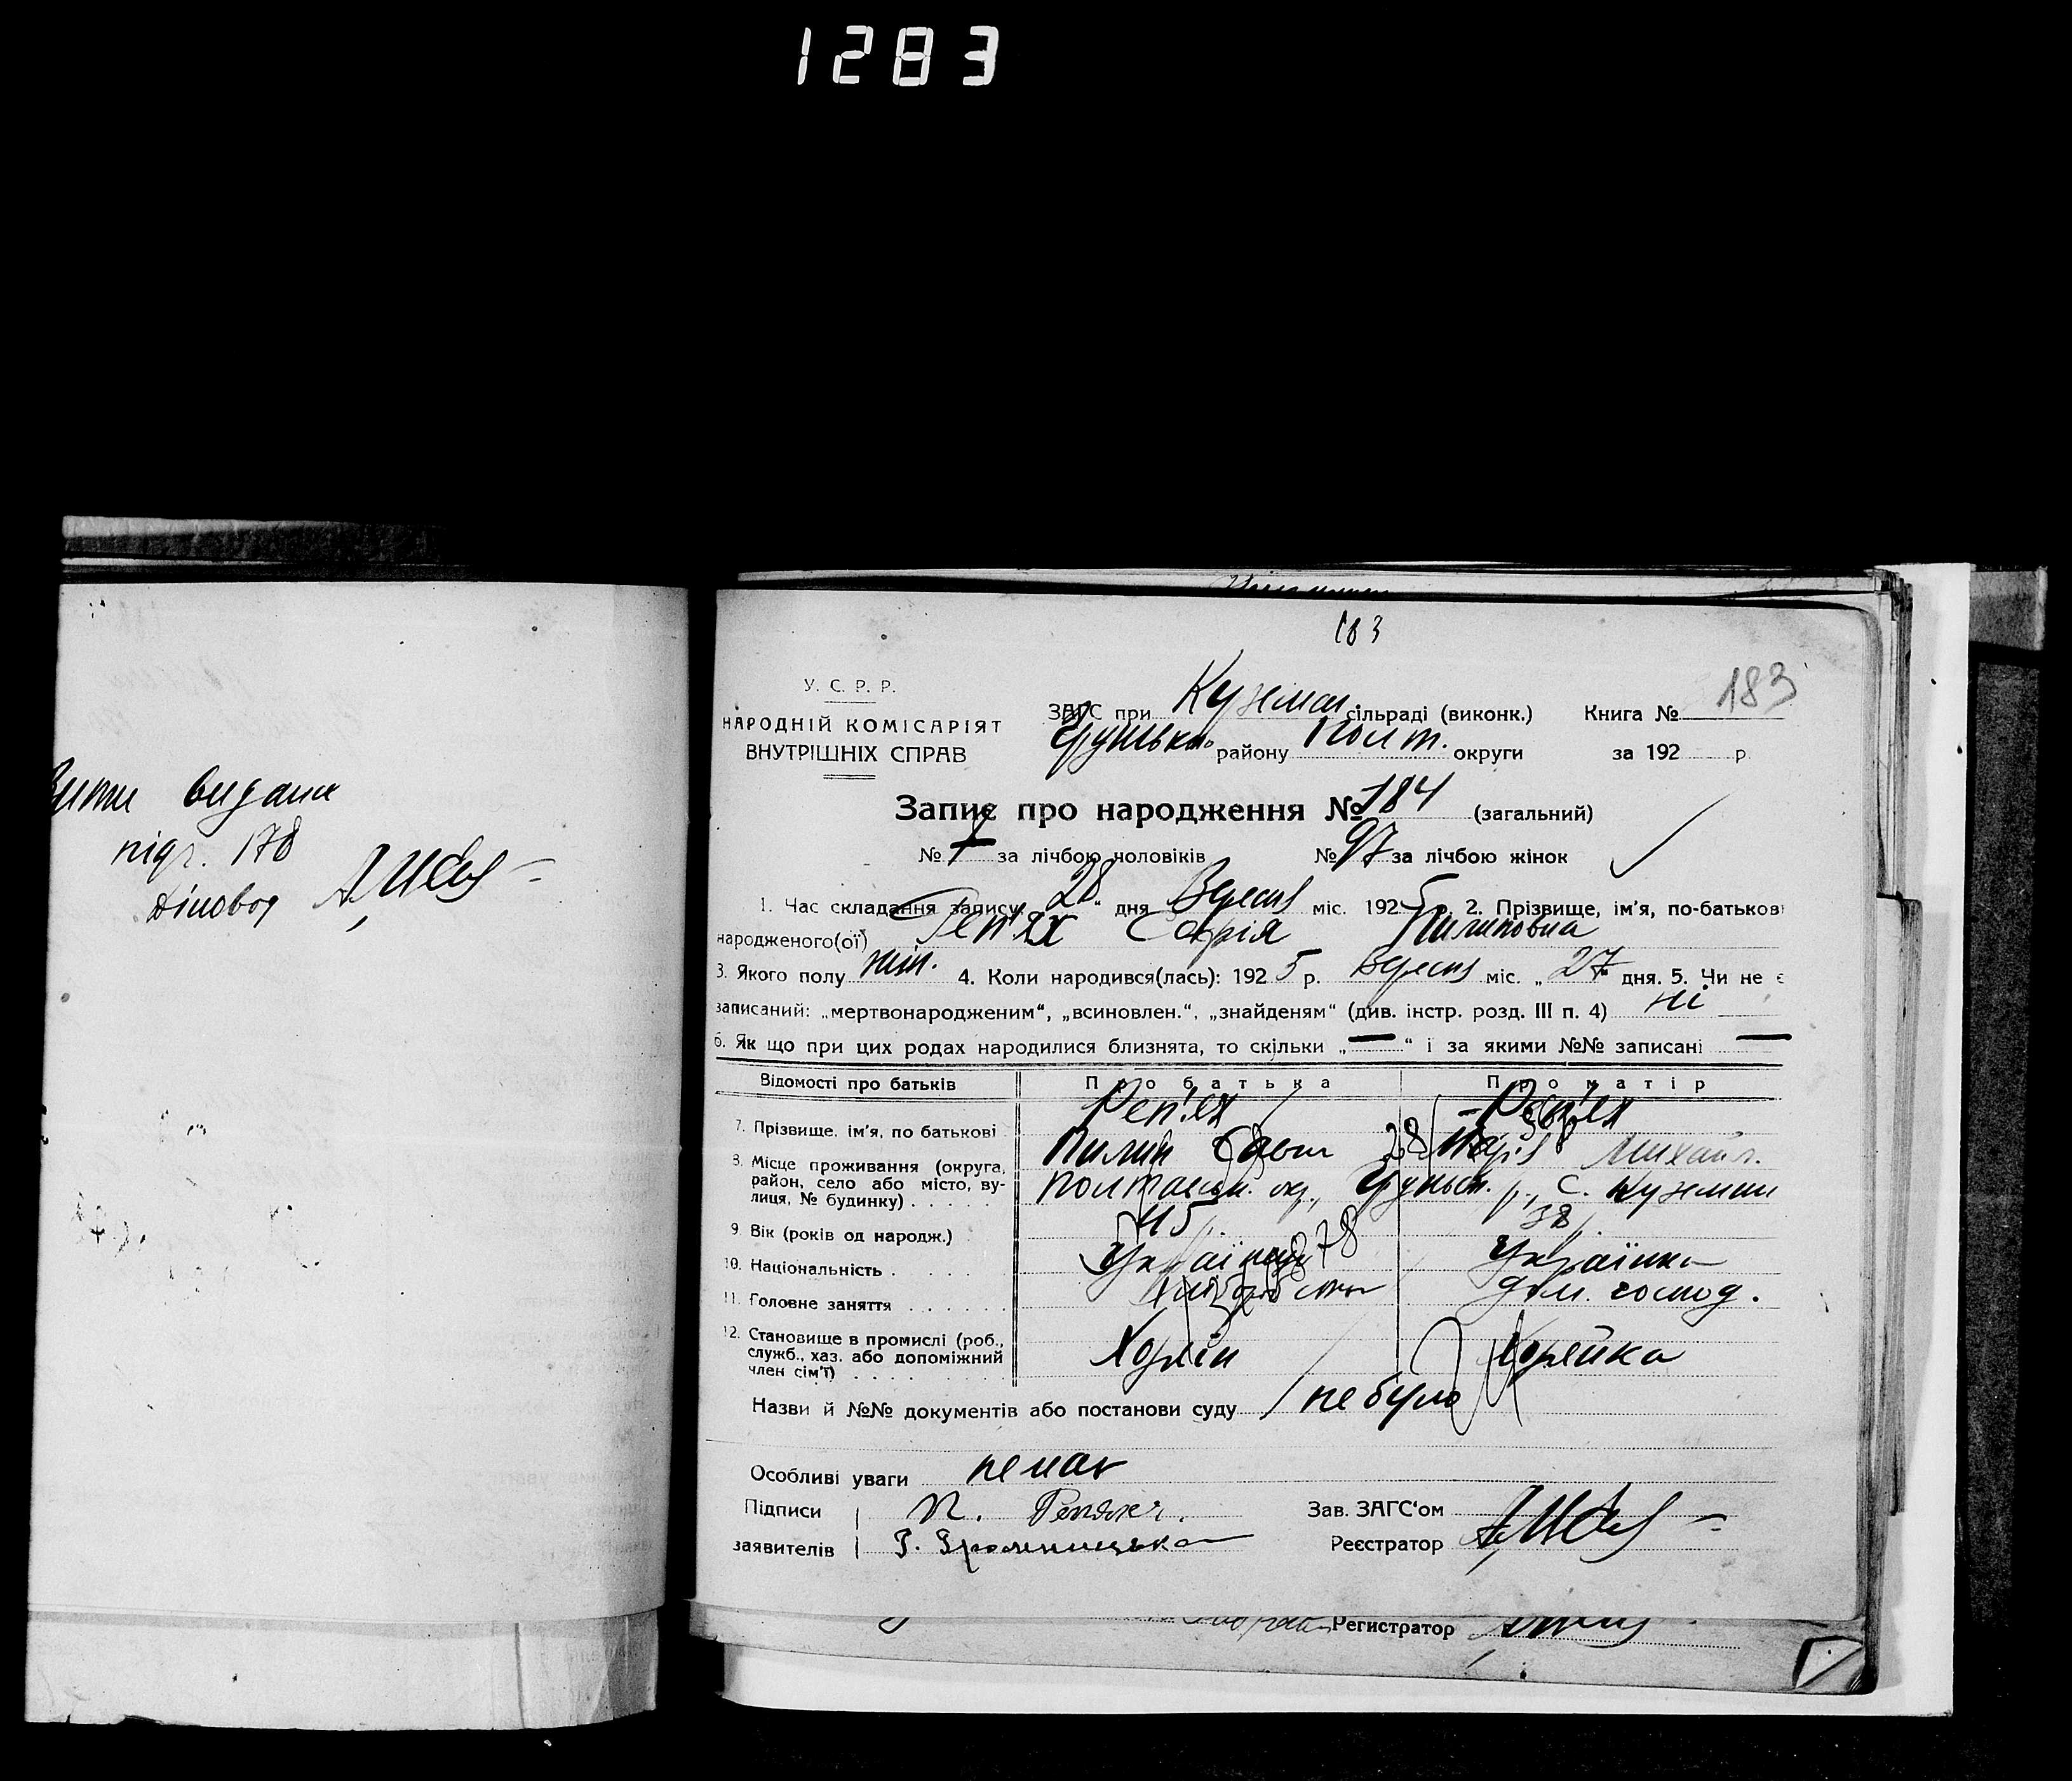 1283
183
У. С. Р. Р.
НАРОДНІЙ КОМІСАРІЯТ
ВНУТРІШНІХ СПРАВ
ЗАГС при Куземен. сільраді (виконк.) Книга № 183
Груньськ. району Полт. округи за 192 р.
Запис про народження № 184 (загальний)
№ за лічбою чоловіків № 97 за лічбою жінок
1. Час складання запису „28“ дня Вересня міс. 1925 р. 2. Прізвище, ім'я, по-батькові
народженого(ої) Реп'ях Софія Пилиповна
3. Якого полу жін. 4. Коли народився(лась): 1925 р. Вересня міс. „27“ дня. 5. Чи не є
записаний: „мертвонародженим“, „всиновлен.“, „знайденям“ (див. інстр. розд. III п. 4) ні
6. Як що при цих родах народилися близнята, то скільки „—“ і за якими №№ записані —
Відомості про батьків Про батька Про матір
7. Прізвище, ім'я, по батькові Реп'ях Пилип Сав Реп'ях Марія Михайл.
8. Місце проживання (округа,
район, село або місто, ву-
лиця, № будинку) Полтавськ. окр., Груньск. р., С. Куземин
9. Вік (років од народж.) 45 38
10. Національність Українець Українка
11. Головне заняття Хліборобство дом. господ.
12. Становище в промислі (роб.,
служб., хаз. або допоміжний
член сім'ї) Хозяїн Хозяйка
Назви й №№ документів або постанови суду не було
Особливі уваги немає
Підписи П. Репях Зав. ЗАГС'ом
заявителів Реєстратор
Регистратор
видана
підч. 178
Діловод